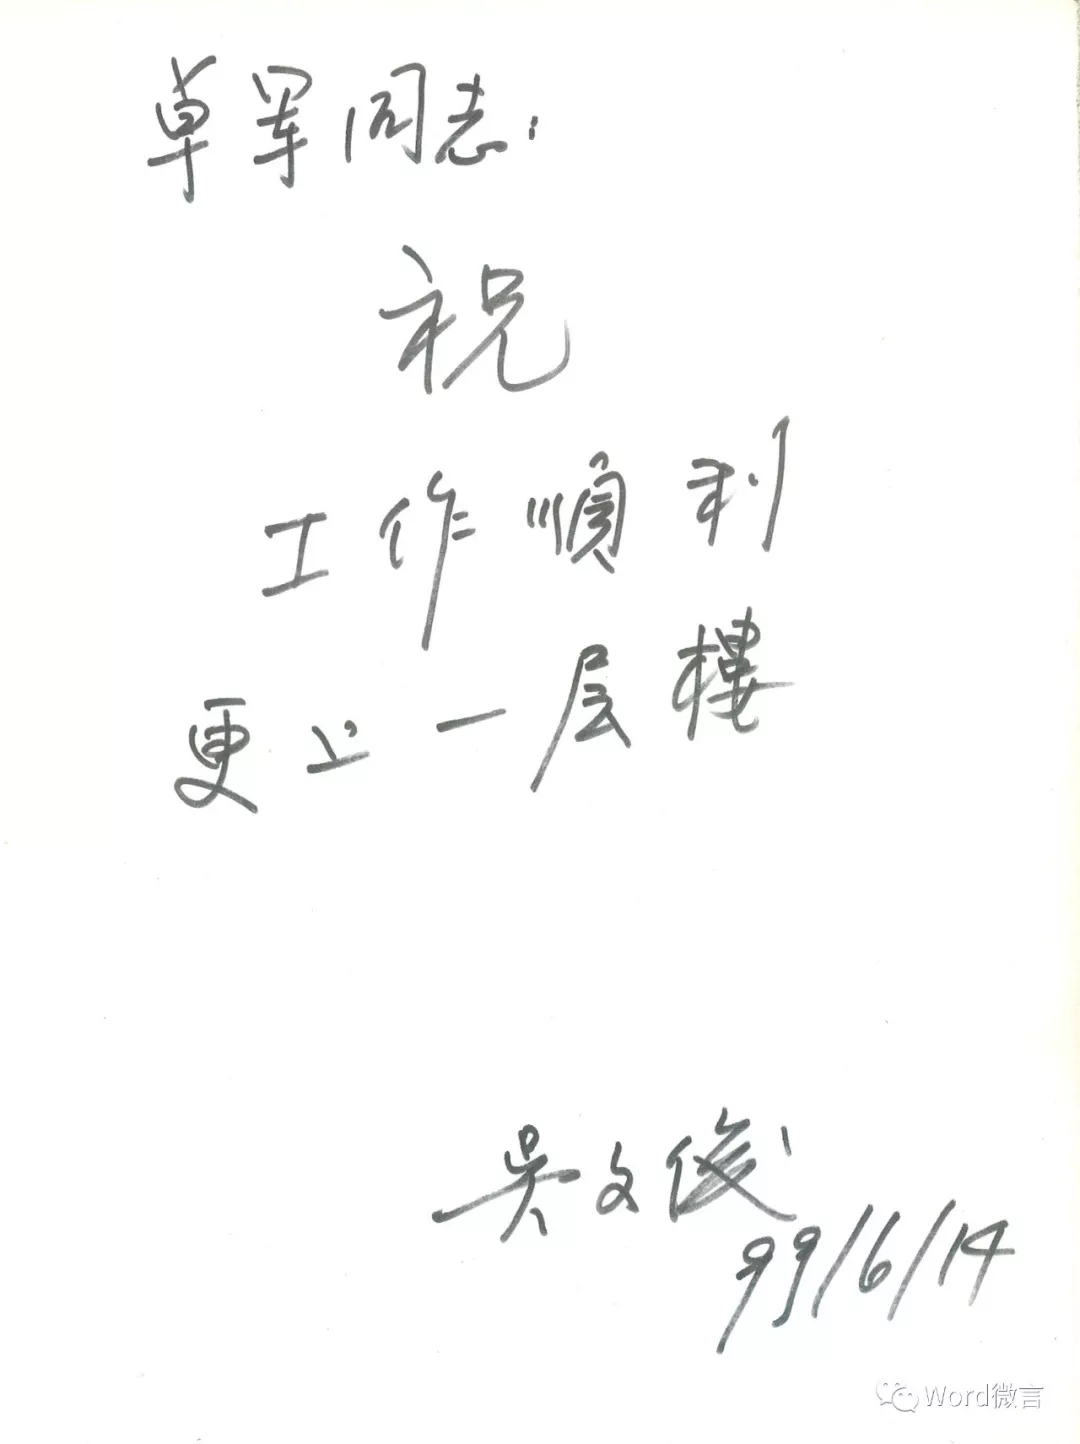 卓军同志:
祝
工作顺利
更上一层樓
吴文俊
99/6/14
Word微言